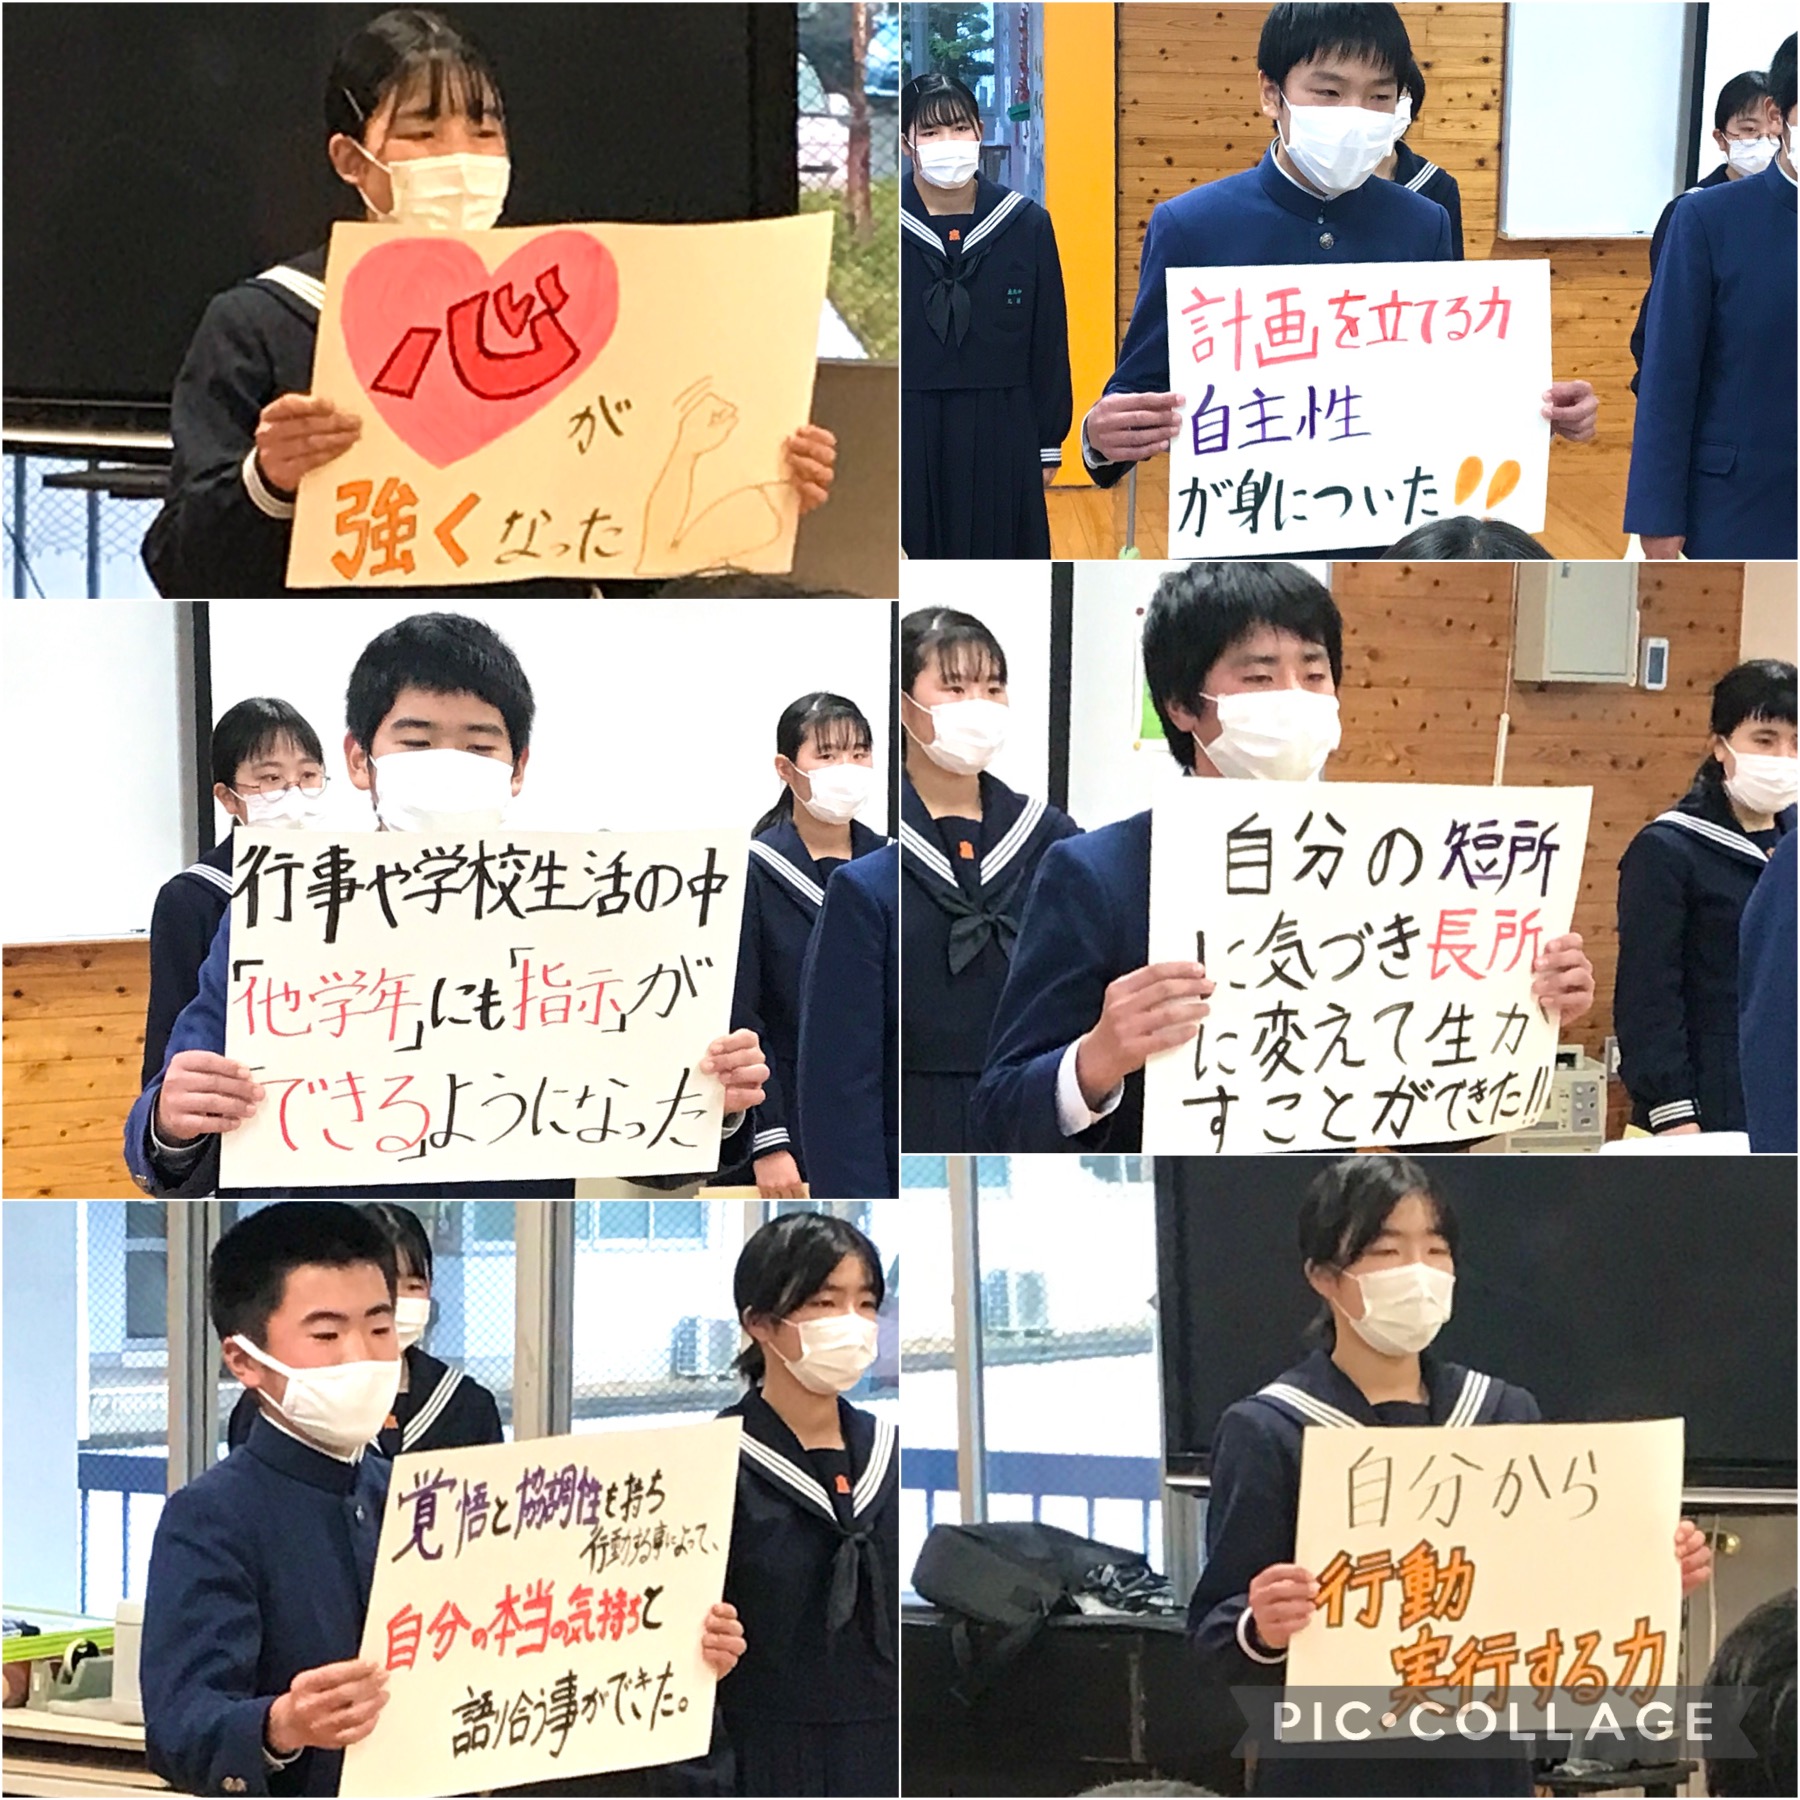 心が
強くなった
計画を立てる力
自主性
が身についた
行事や学校生活の中
「他学年」にも「指示」が
「できる」ようになった
自分の短所
に気づき長所
に変えて生か
すことができた!!
覚悟と協調性を持ち
行動する事によって、
自分の本当の気持ちと
語り合う事ができた。
自分から
行動
実行する力
PIC・COLLAGE